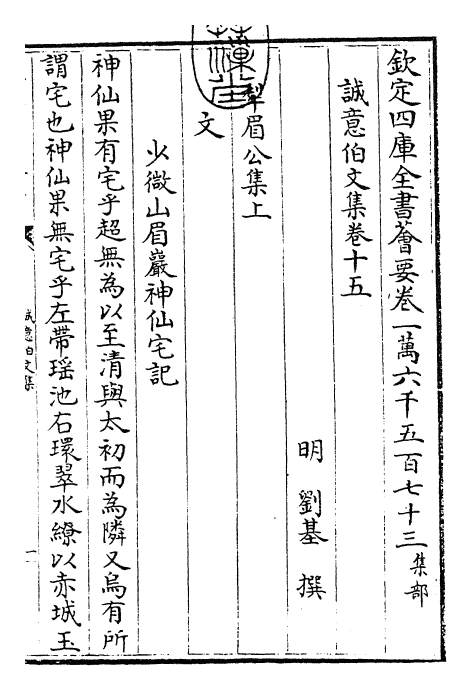 欽定四庫全書薈要卷一萬六千五百七十三集部
誠意伯文集卷十五
明劉基撰
犂眉公集上
文
少微山眉巖神仙宅記
神仙果有宅乎超無為以至清與太初而為隣又烏有所
謂宅也神仙果無宅乎左帶瑶池右環翠水繚以赤城玉
誠意伯文集
一